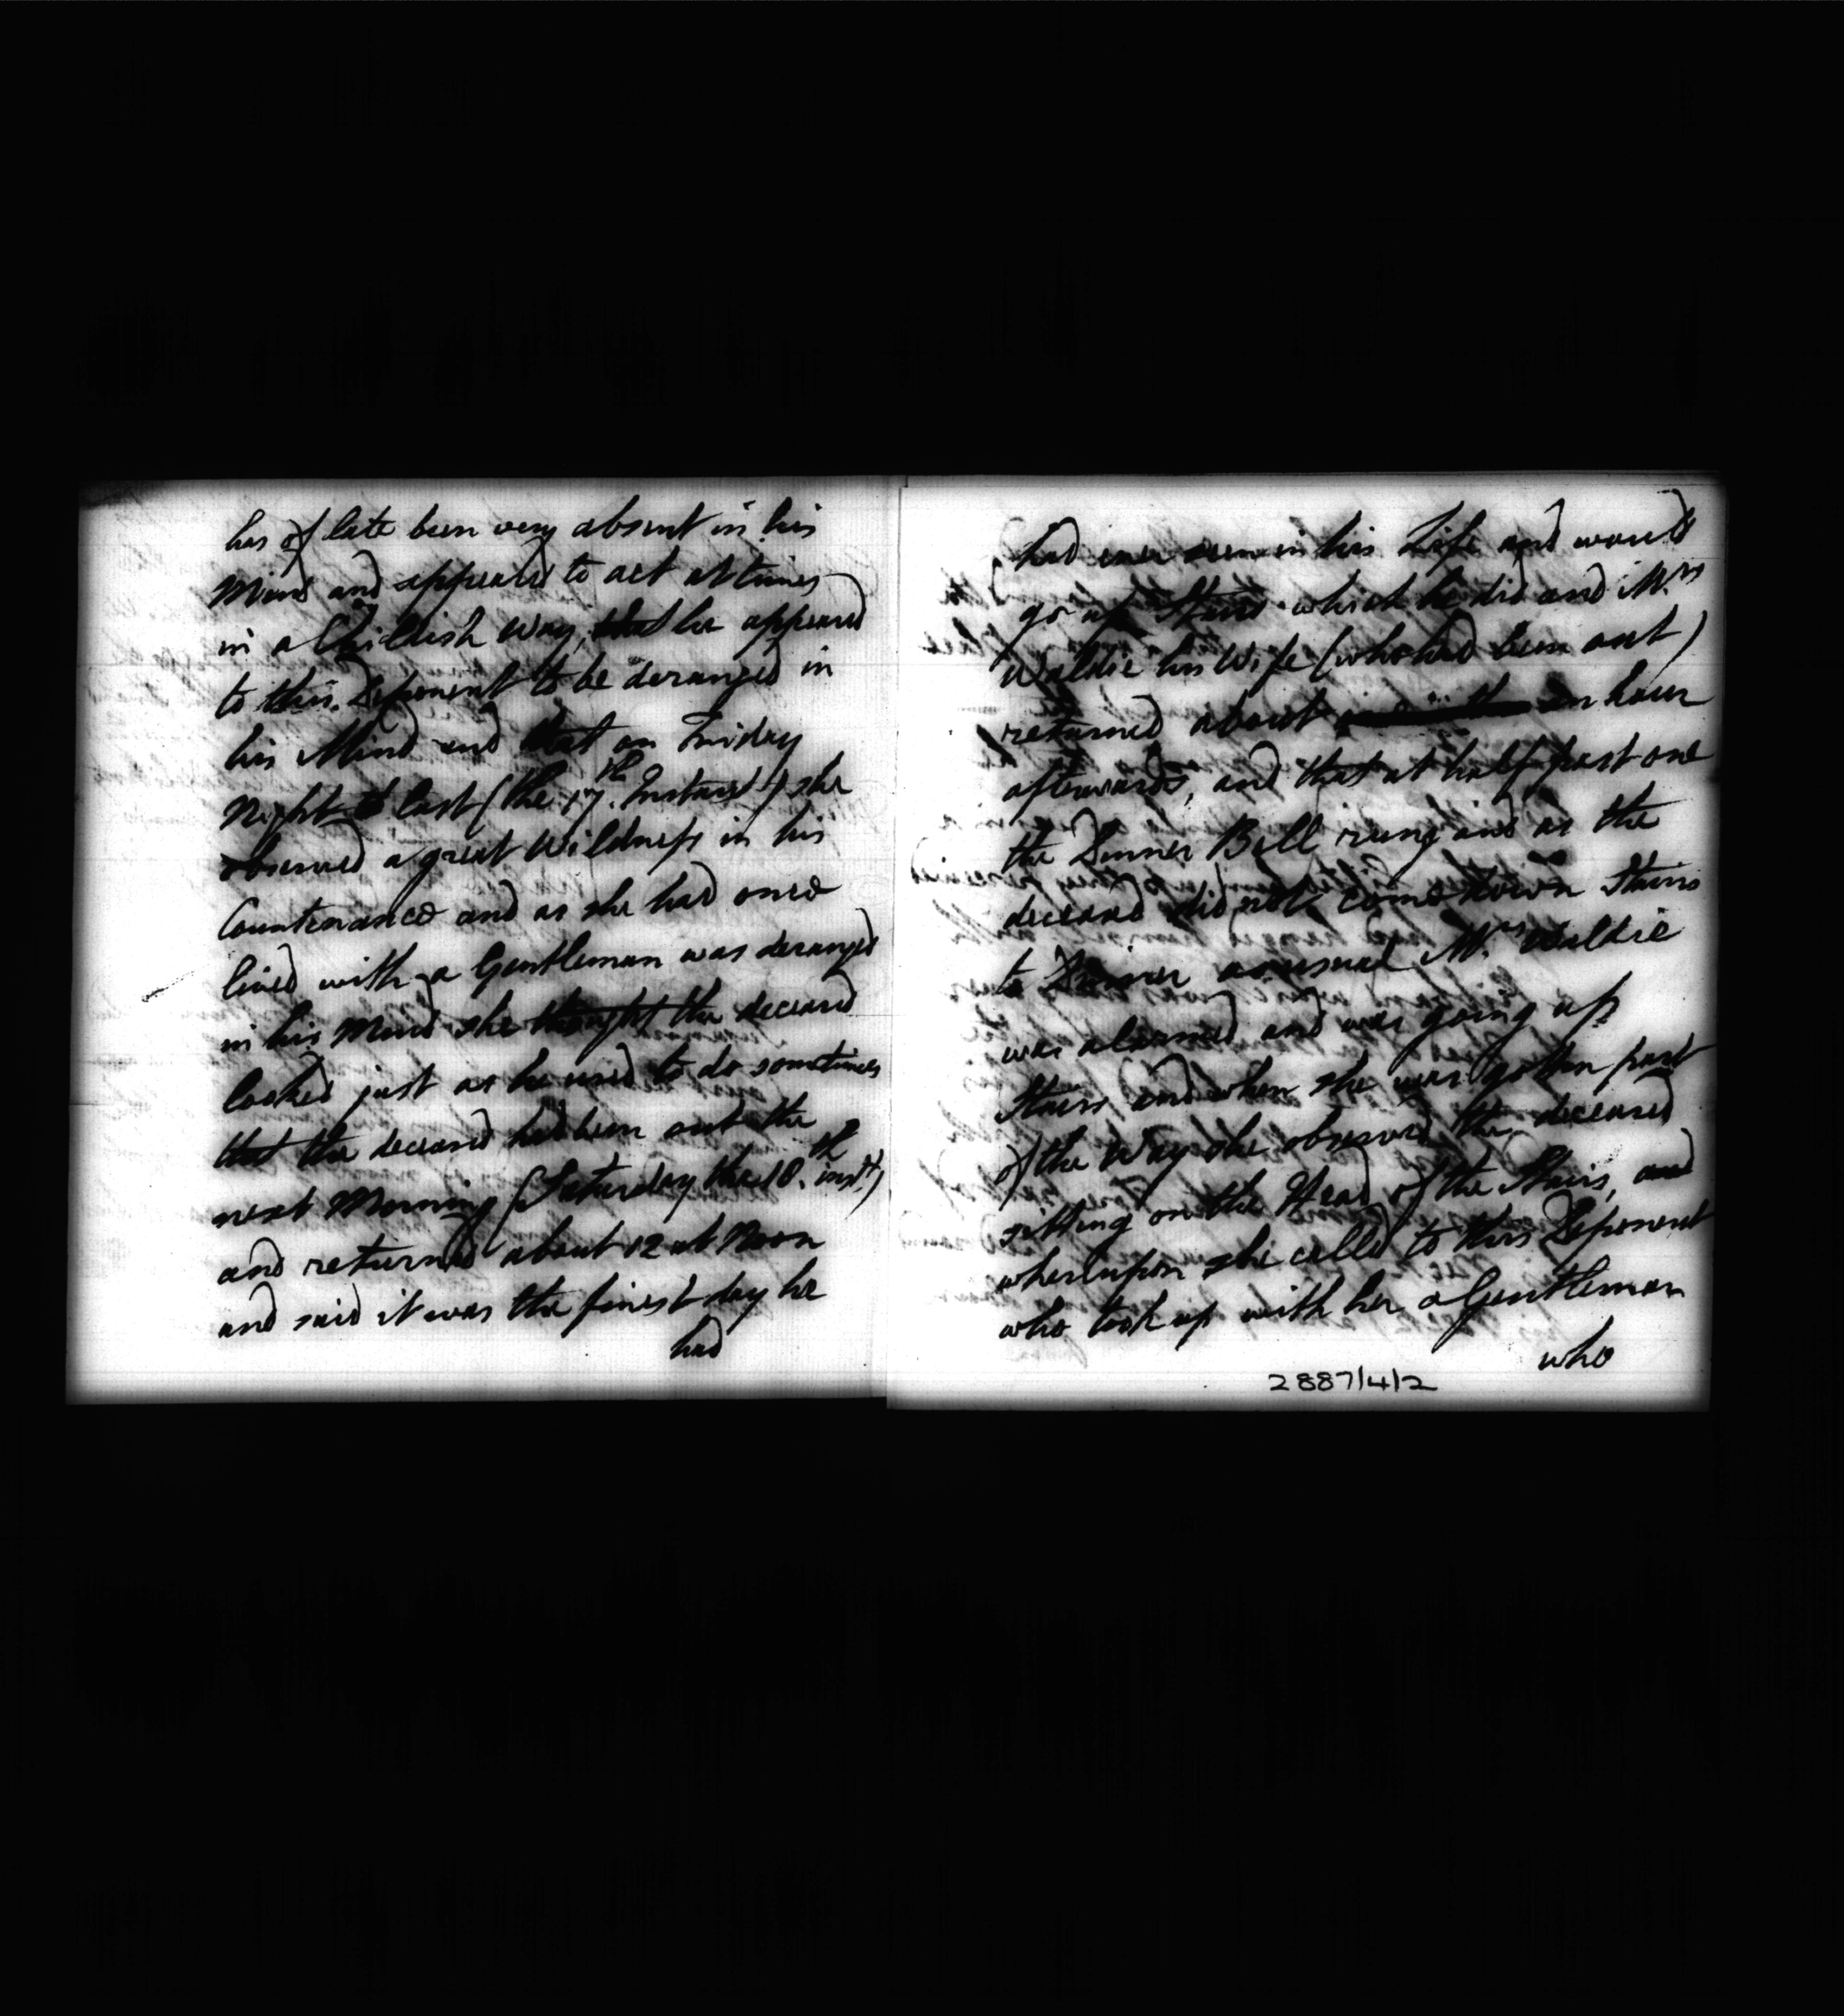 has of late been very absent in his
Mind and appeared to act at times
in a Childish Way, that he appeared
to this Deponent to be deranged in
his Mind and that on Friday
Night last (the 17th. Instant) she
observed a great Wildness in his
Countenance and as she had once
lived with a Gentleman was deranged
in his Mind she thought the deceased
looked just as he used to do sometimes
that the deceased had been out the
next Morning (Saturday the 18th. inst.)
and returned about 12 at Noon
and said it was the finest day he
had
had ever seen in his Life and would
go up Stairs which he did and Mrs
Waldie his Wife (who had been out)
returned about an hour
afterwards, and that at half past one
the Dinner Bell rung and as the
deceased did not come down Stairs
to Dinner as usual Mrs. Waldie
was alarmed and was going up
Stairs and when she was gotten part
of the Way she observed the deceased
sitting on the Head of the Stairs, and
whereupon she called to this Deponent
who took up with her a Gentleman
who
2887/4/2